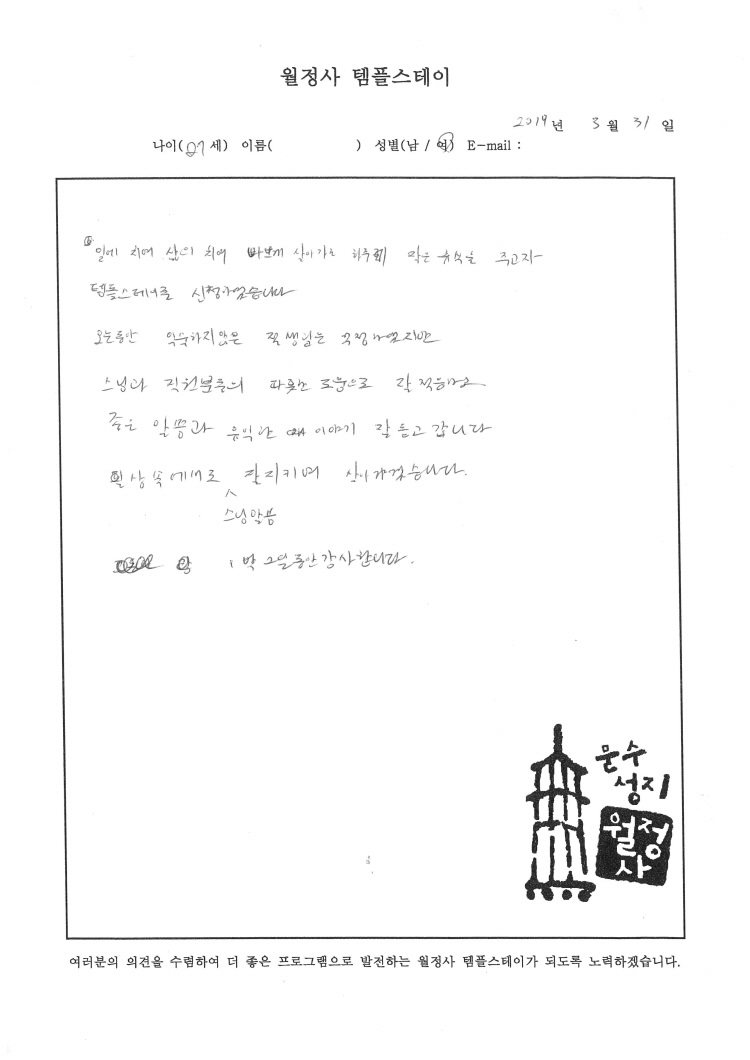 월정사 템플스테이
2019년 3월 31일
나이(27세) 이름( ) 성별(남 / 여) E-mail :
일에 치여 삶의 치여 바쁘게 살아가는 하루에 작은 휴식을 주고자
템플스테이를 신청하였습니다
익숙하지않은 걱정하였지만
스님과 직원분들의 따뜻한 도움으로 잘 적응하고
좋은 말씀과 음악과 이야기 잘 듣고 갑니다
일상 속에서도 스님말씀 살아가겠습니다.
1박 2일동안 감사합니다.
문수
성지
월정
사
여러분의 의견을 수렴하여 더 좋은 프로그램으로 발전하는 월정사 템플스테이가 되도록 노력하겠습니다.